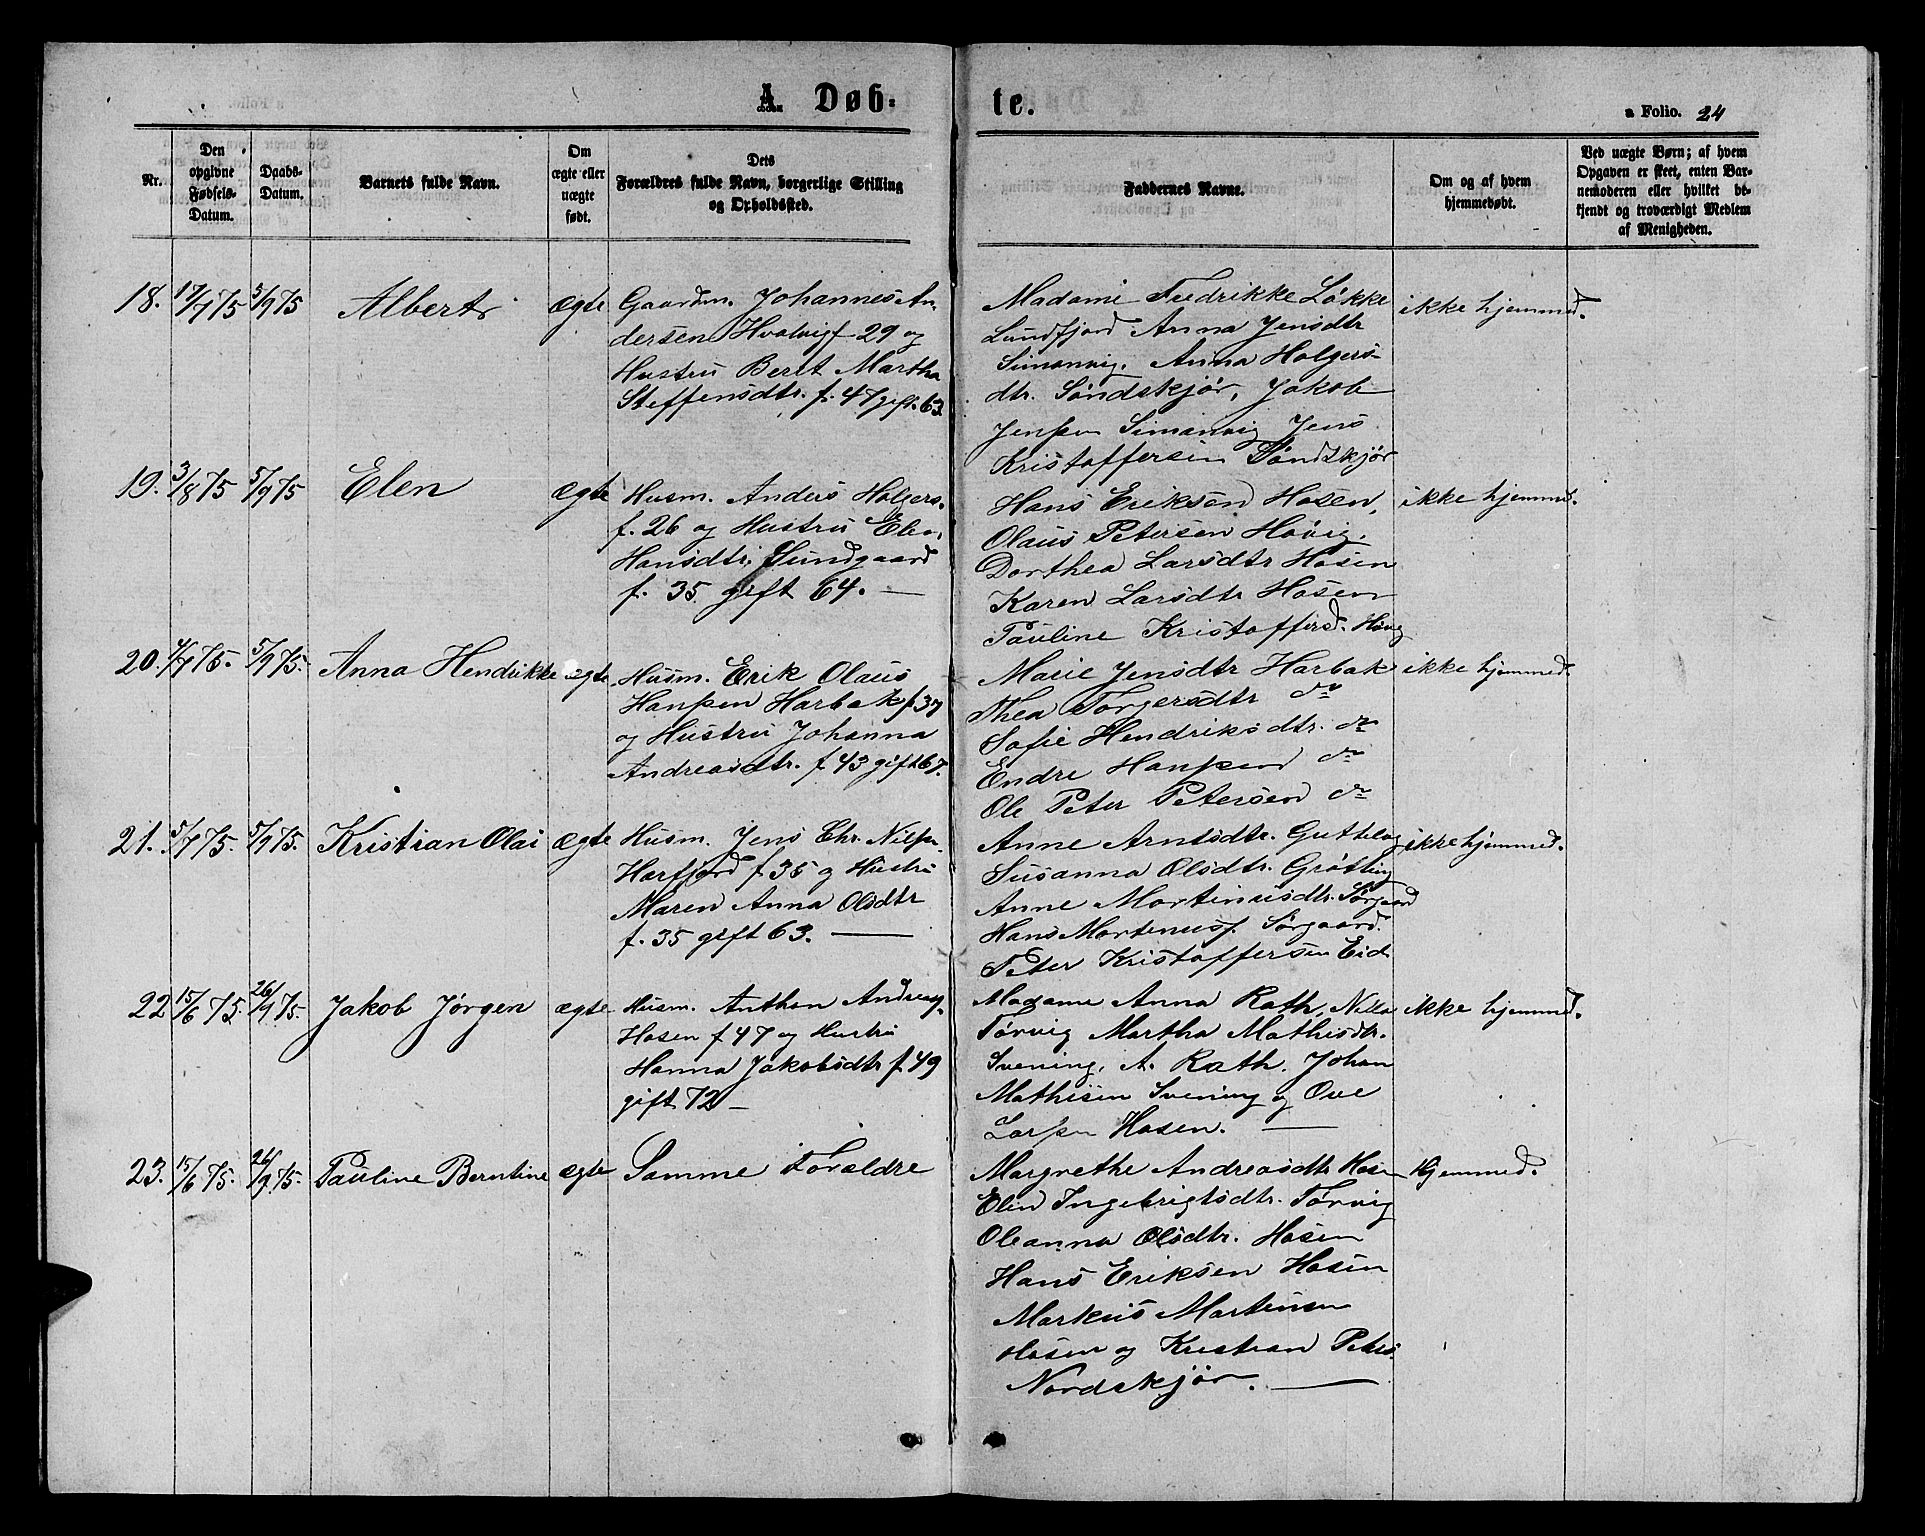 A Døb-
te.
a Folio. 24
Nr.
Den
opgivne
Fødsels-
Datum.
Daabs-
Datum.
Barnets fulde Navn.
Om
ægte eller
uægte
født.
Dets
Forældres fulde Navn, borgerlige Stilling
og Opholdssted.
Faddernes Navne.
Om og af hvem
hjemmedøbt.
Ved uægte Børn; af hvem
Opgaven er skeet, enten Bar-
nemoderen eller hvilket be-
kjendt og troværdigt Medlem
af Menigheden.
18. 17/7 75 5/9 75 Albert ægte
Gaardm. Johannes An-
dersen Hvalvig f 29 og
Hustru Beret Martha
Steffensdtr. f. 47 gift. 63
Madame Fredrikke Løkke
Lundfjord Anna Jensdtr
Simanvig. Anna Holgers-
dtr. Søndskjør, Jakob
Jensen Simanvig Jens
Kristoffersen Søndskjør
ikke hjemmed.
19. 3/8 75 5/9 75 Elen ægte
Husm. Anders Holgers.
f. 26 og Hustru
Hansdtr. Sundgaard
f. 35 gift 64. —
Hans Eriksen Hosen,
Olaus Petersen Høvig.
Dorthea Larsdtr Hosen
Karen Larsdtr Hosen
Pauline Kristoffersd. Høvig
ikke hjemmed.
20. 4/7 75. 5/9 75. Anna Hendrikke ægte
Husm. Erik Olaus
Hansen Harbak f 37
og Hustru Johanna
Andreasdtr. f 43 gift 67.
Marie Jensdtr Harbak
Thea Torgersdtr do
Sofie Hendriksdtr. do
Endre Hansen do
Ole Peter Petersen do
ikke hjemmed.
21. 5/7 75. 5/9 75. Kristian Olai ægte
Husm. Jens Chr. Nilsen
Harfjord f 35 og Hustru
Maren Anna Olsdtr
f. 35 gift 63. —
Anne Arntsdtr.
Susanna Olsdtr. Grøtting
Anne Martinusdtr. Sørgaard
Hans Martinuss. Sørgaard.
Peter Kristoffersen Eid
ikke hjemmed.
22 15/6 75. 26/9 75. Jakob Jørgen ægte
Husm. Anthon Andreass.
Hosen f 47 og Hustru
Hanna Jakobsdtr f 49
gift 72 —
Madame Anna Rath,
Tørvig Martha Mathisdtr.
Svening, A. Rath. Johan
Mathisen Svening og Ove
Larsen Hosen. —
ikke hjemmed.
23. 15/6 75. 26/9 75. Pauline Berntine ægte
Samme Forældre
Margrethe Andreasdtr Hosen
Elen Ingebrigtsdtr. Tørvig
Oleanna Olsdtr. Hosen
Hans Eriksen Hosen
Markus Martinsen
Hosen og Kristian Peters.
Nordskjør. —
Hjemmed.